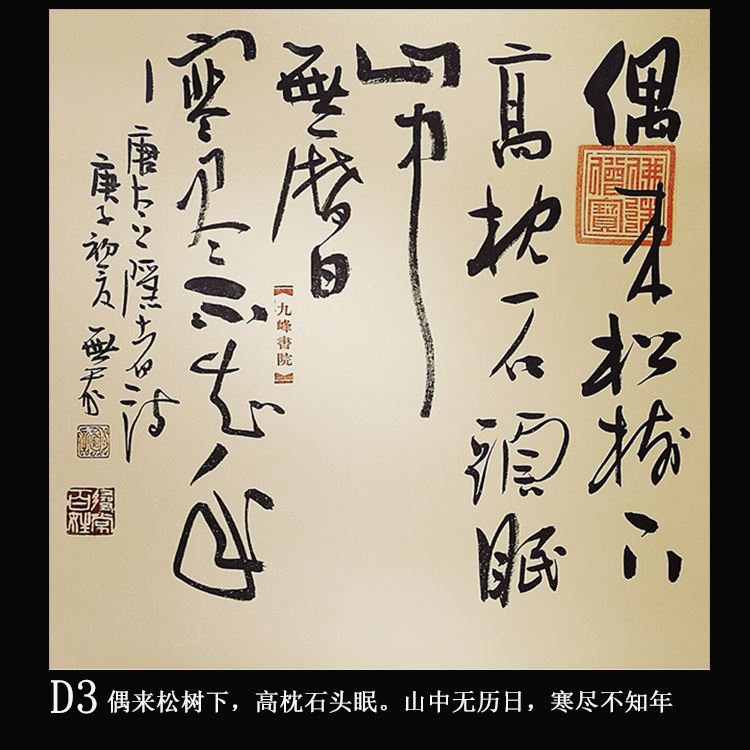 偶来松树下
高枕石頭眠
山中
無曆日
寒尽不知年
唐太上隠者诗
庚子初夏
九峰書院
D3 偶来松树下，高枕石头眠。山中无历日，寒尽不知年